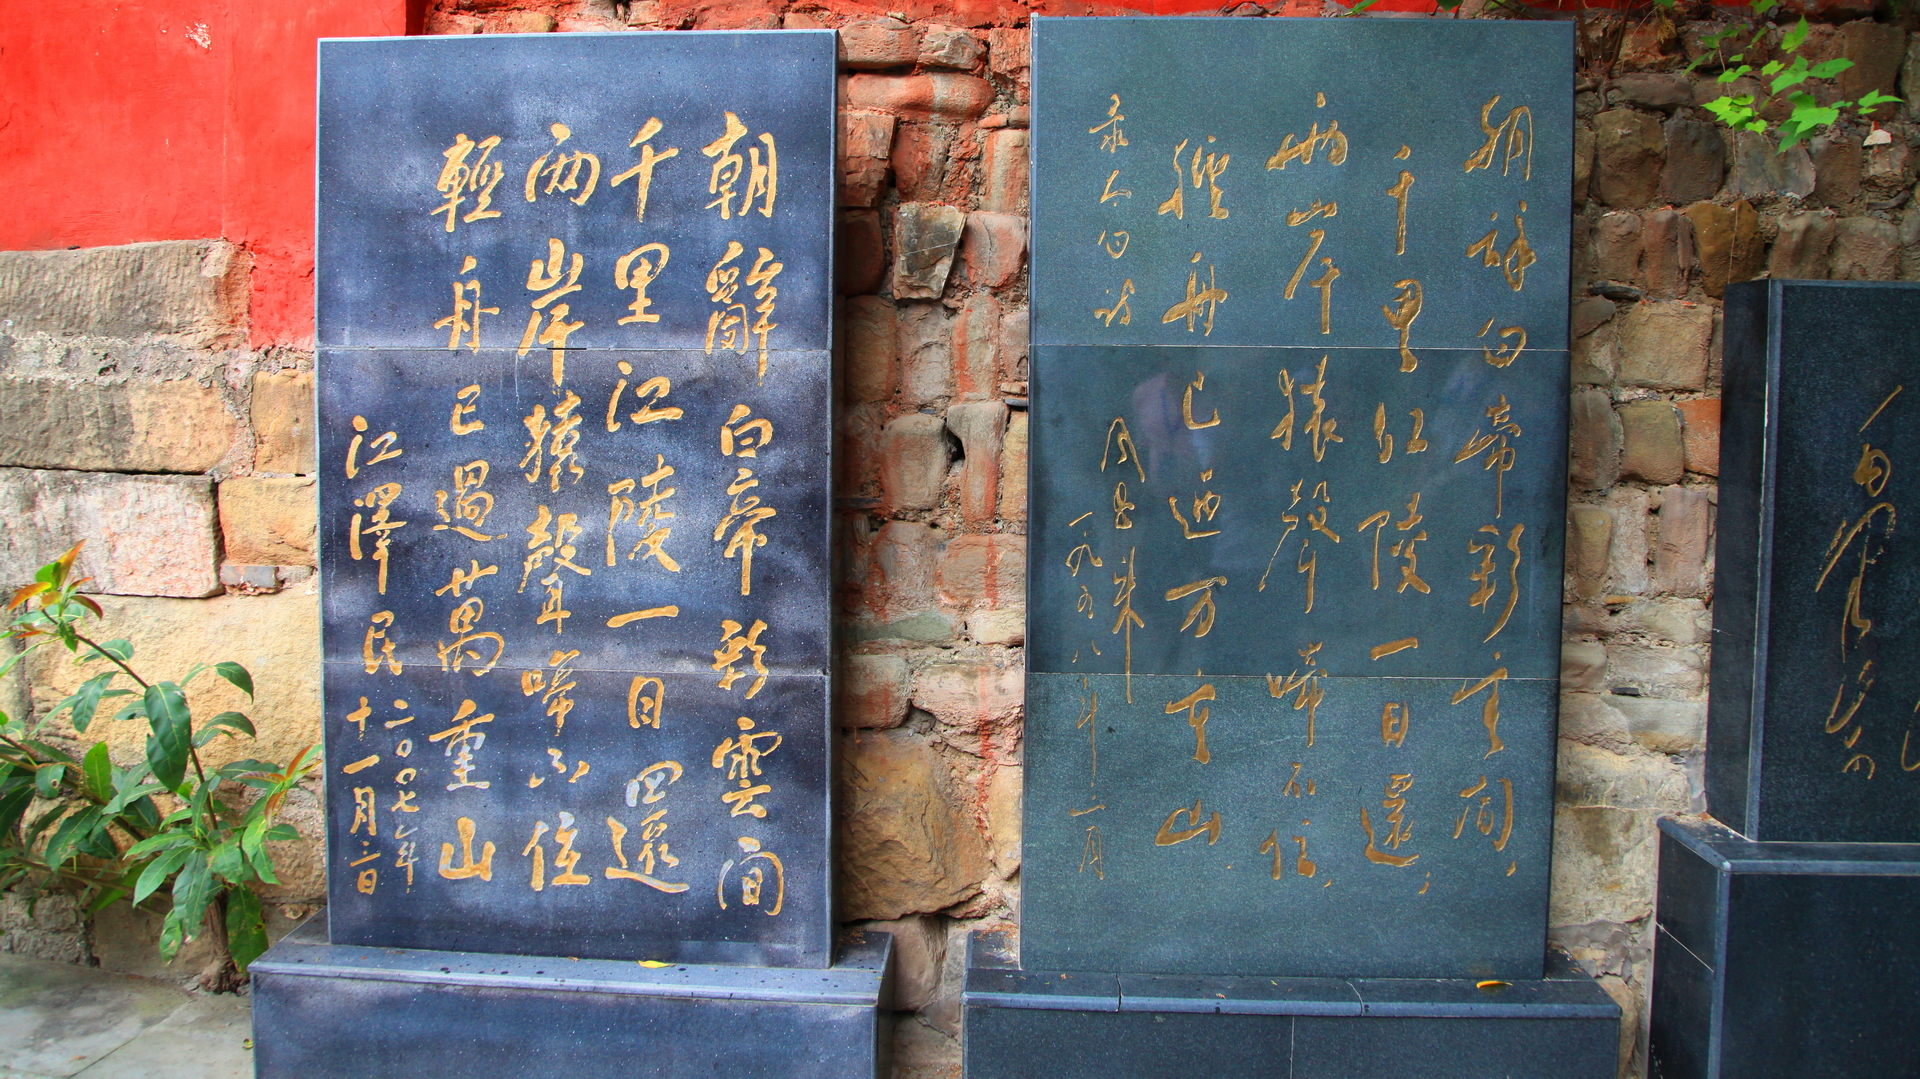 朝辞白帝彩云间，
千里江陵一日還，
两岸猿聲啼不住，
轻舟已过万重山.
录太白诗
周恩来
一九五八年 月
朝辭白帝彩雲間
千里江陵一日還
兩岸猿聲啼不住
輕舟已過萬重山
江澤民
二〇〇七年
十一月 日